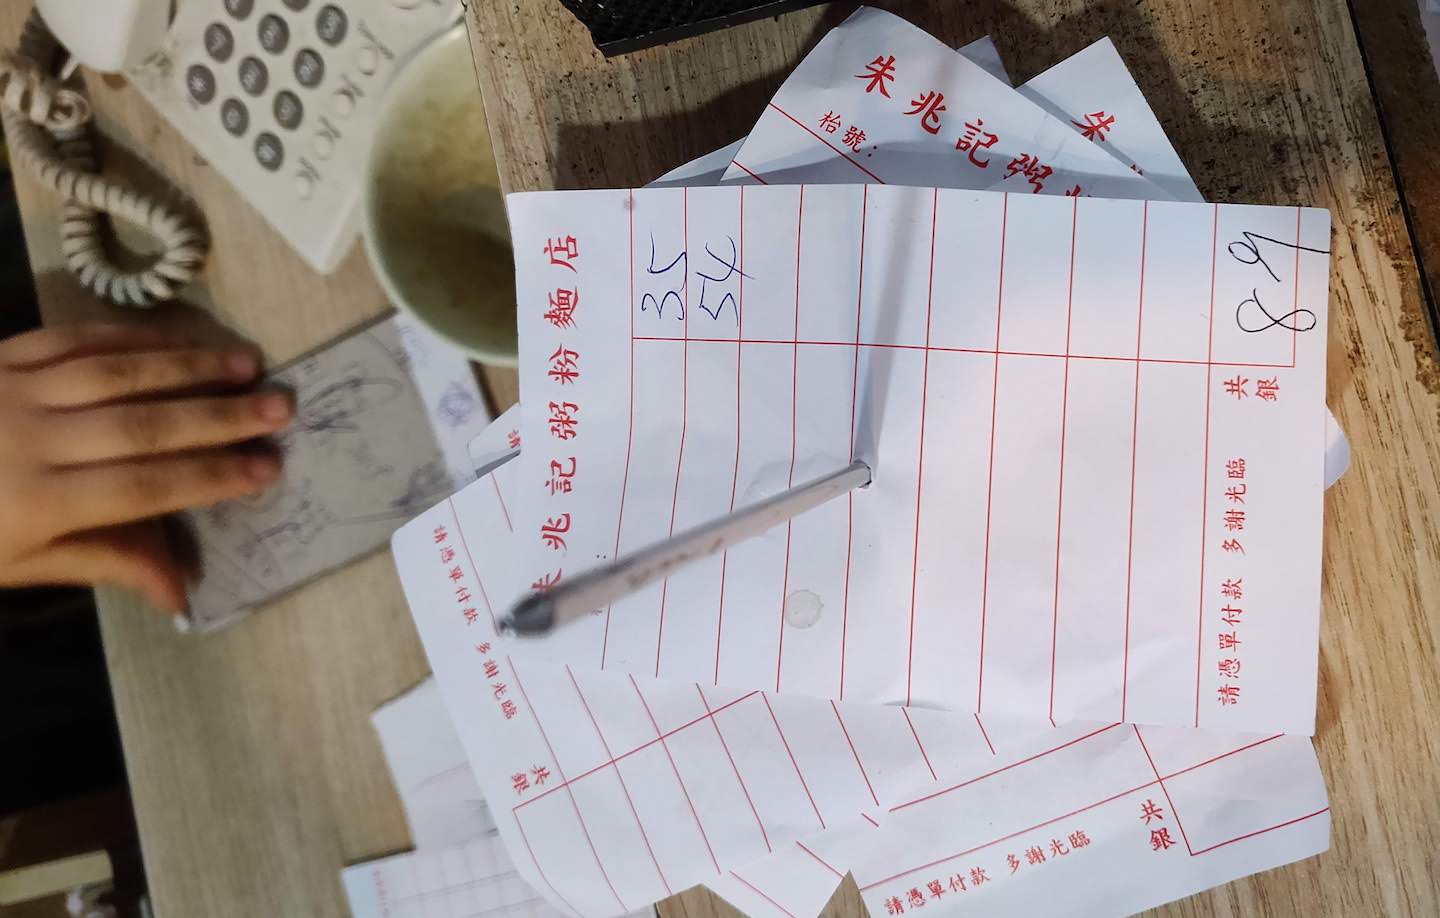 朱兆記粥粉麵店
35
54
共銀
89
請憑單付款 多謝光臨
朱兆記粥
枱號：
朱
請憑單付款 多謝光臨
共銀
請憑單付款 多謝光臨
共銀